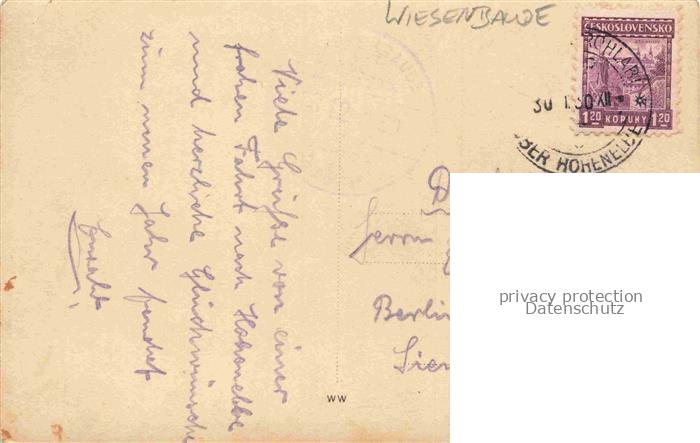 WIESENBAUDE
ČESKOSLOVENSKO
30 XII
1 20 KORUNY 1 20
OBER HOHENELBE
Viele Grüße von einer
frohen Fahrt nach Hohenelbe
und herzliche Glückwünsche
zum neuen Jahr sendet
Ewald
Herrn
Berlin
WW
privacy protection
Datenschutz